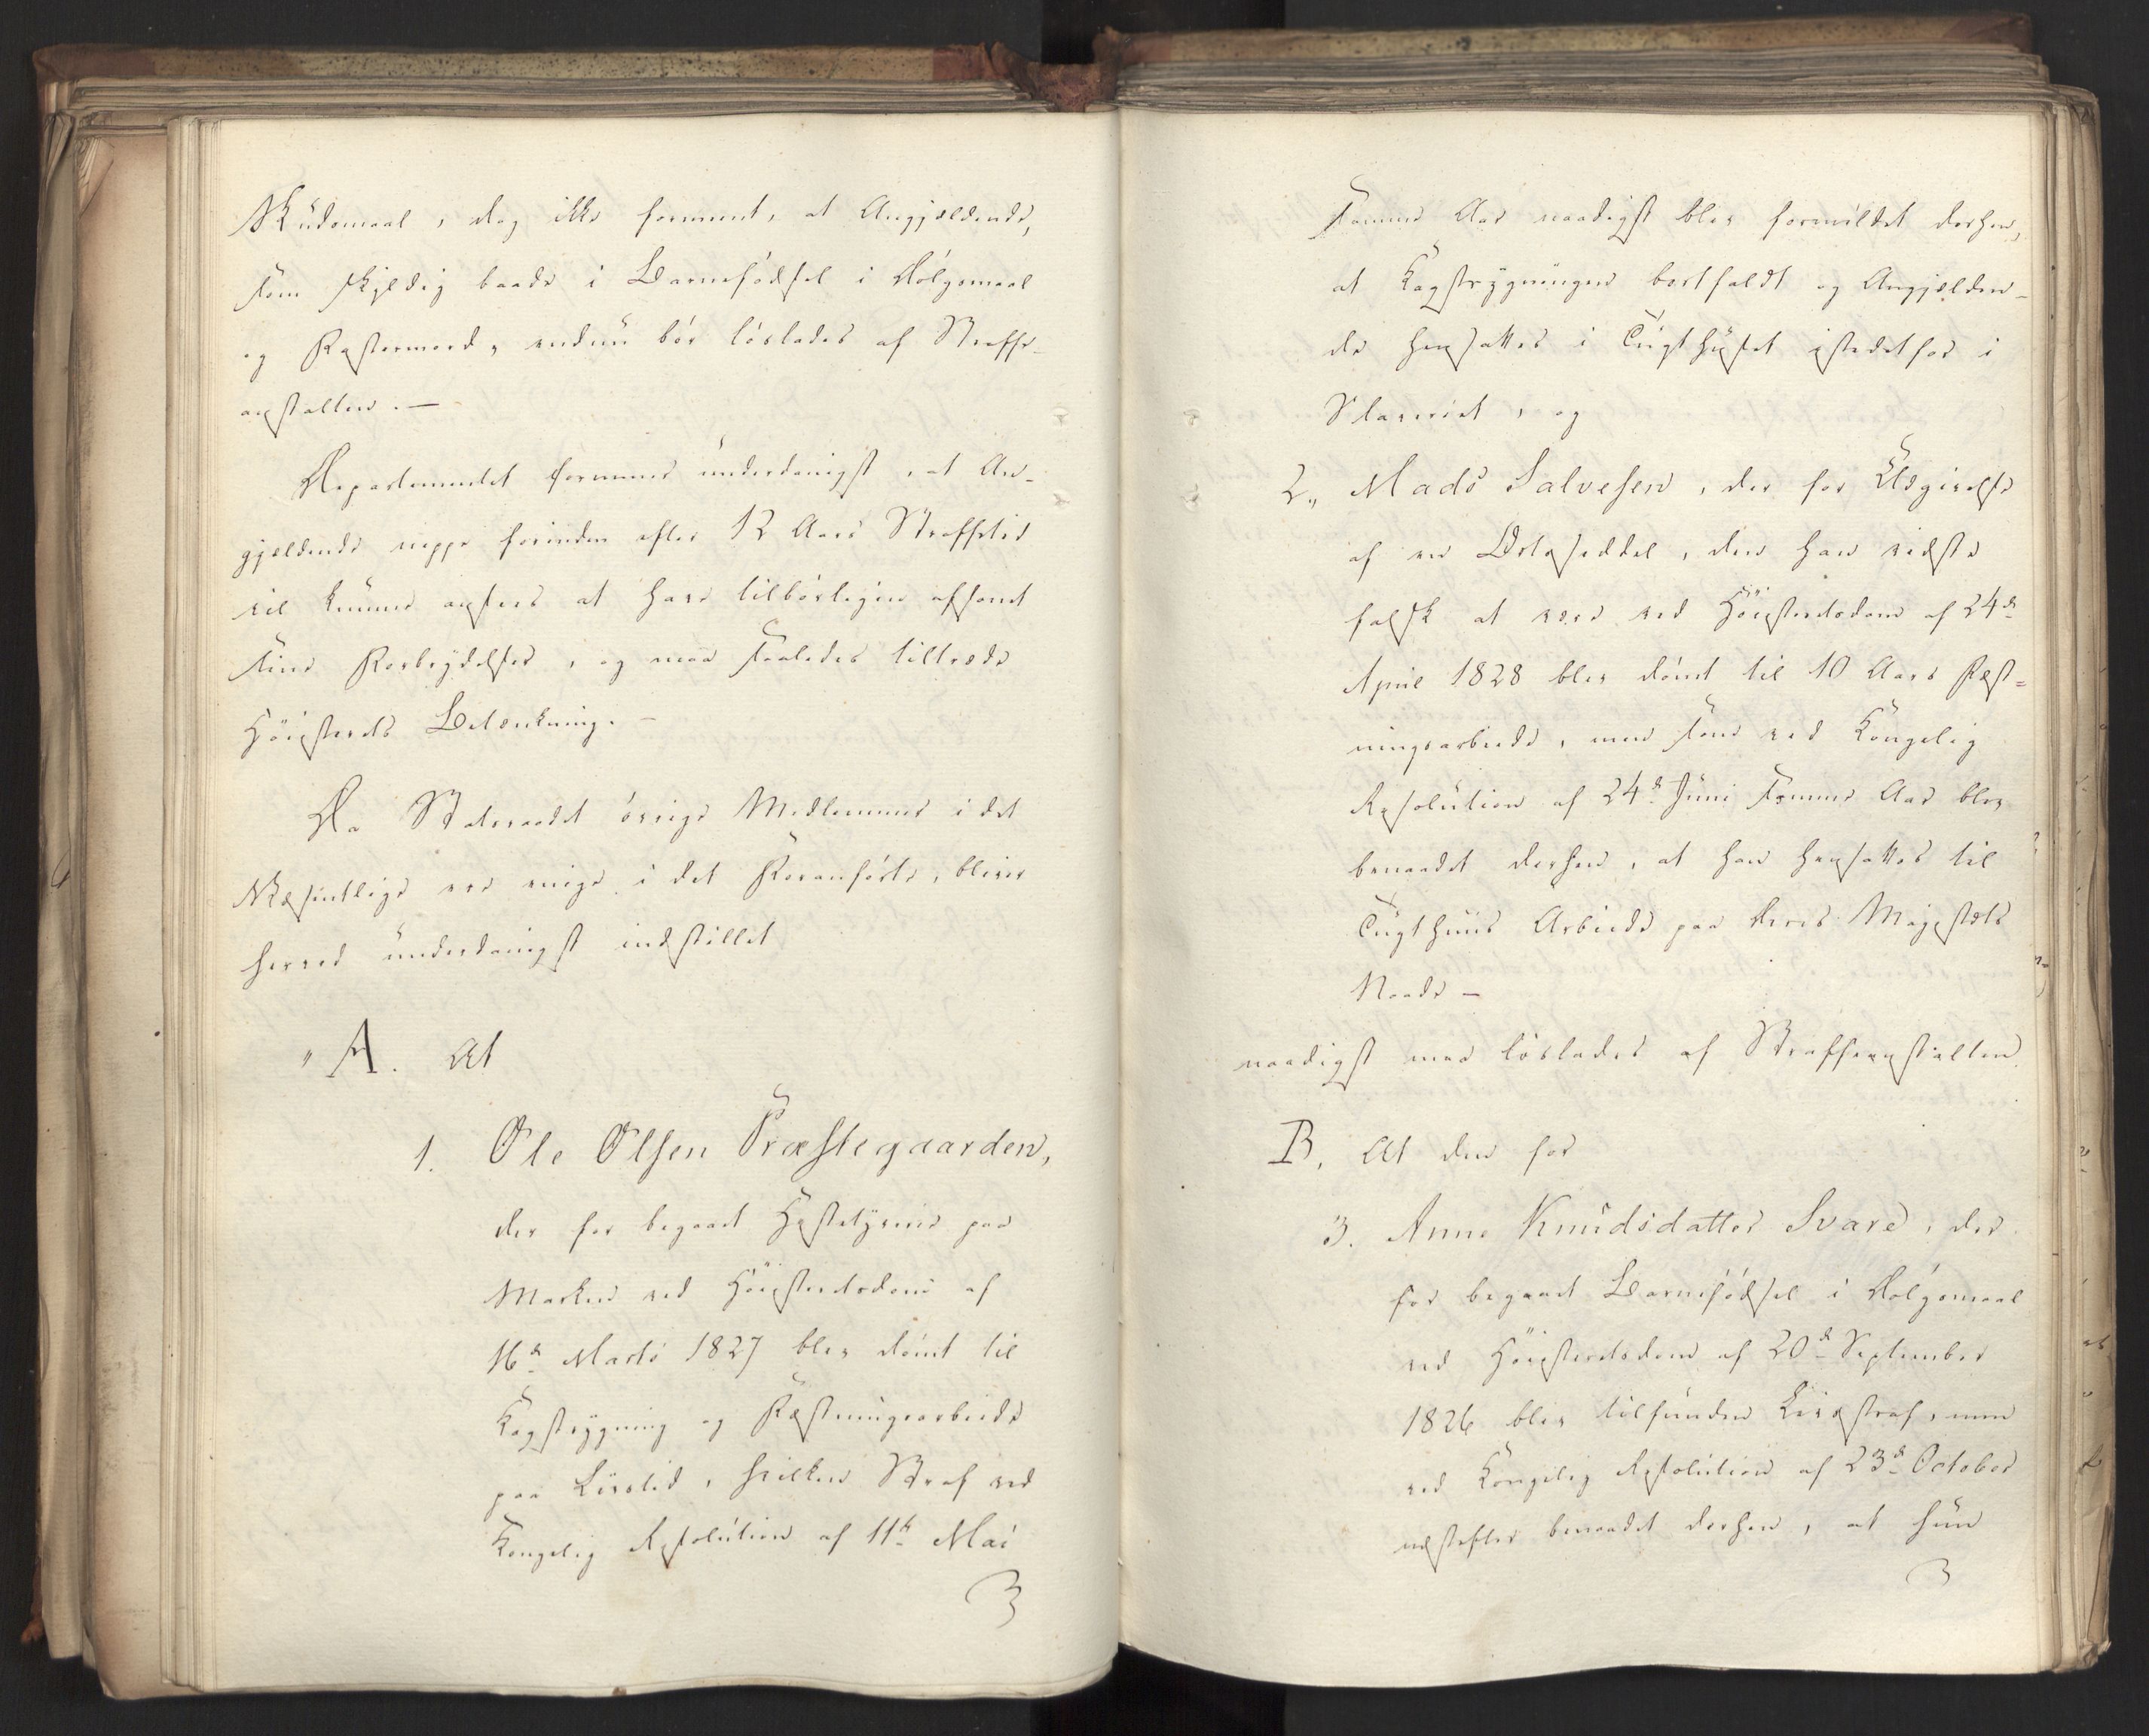 Skudsmaal, dog ikke formeent, at Angjældende,
som skyldig baade i Barnefødsel i Dølgsmaal
og Fostermord, endnu bør løslades af Straffe-
anstalten. —
Departementet formener underdanigst, at An-
gjældende neppe forinden efter 12 Aars Straffetid
vil kunne ansees at have tilbørligen afsonet
sine Forbrydelser, og maa saaledes tiltræde
Höiesterets Betænkning. —
Da Statsraadet øvrige Medlemmer i det
Væsentlige ere enige i det Foranførte, bliver
herved underdanigst indstillet
" A. At
1. Ole Olsen Præstegaarden,
der for begaaet Hestetyverie paa
Marken ved Höiesteretsdom af
16de Marts 1827 blev dømt til
Kagstrygning og Fæstningsarbeide
paa Livstid, hvilken Straf ved
Kongelig Resolution af 11te Mai
samme Aar naadigst blev formildet derhen,
at Kagstrygningen bortfaldt og Angjælden-
de hensattes i Tugthuset istedetfor i
Slaveriet, og
2., Mads Salvesen, der for Udgivelse
af en Sedel, den han vidste
falsk at være ved Höiesteretsdom af 24de
April 1828 blev dømt til 10 Aars Fæst-
ningsarbeide, men som ved Kongelig
Resolution af 24de Juni samme Aar blev
benaadet derhen, at han hensattes til
Tugthuus Arbeide paa Deres Majestæts
Naade —
naadigst maa løslades af Straffeanstalten.
B. At den for
3. Anne Knudsdatter Svare, der
for begaaet Barnefødsel i Dølgsmaal
ved Höiesteretsdom af 20de September
1826 blev tilfunden Livsstraf, men
ved Kongelig Resolution af 23de October
næstefter benaadet derhen, at hun